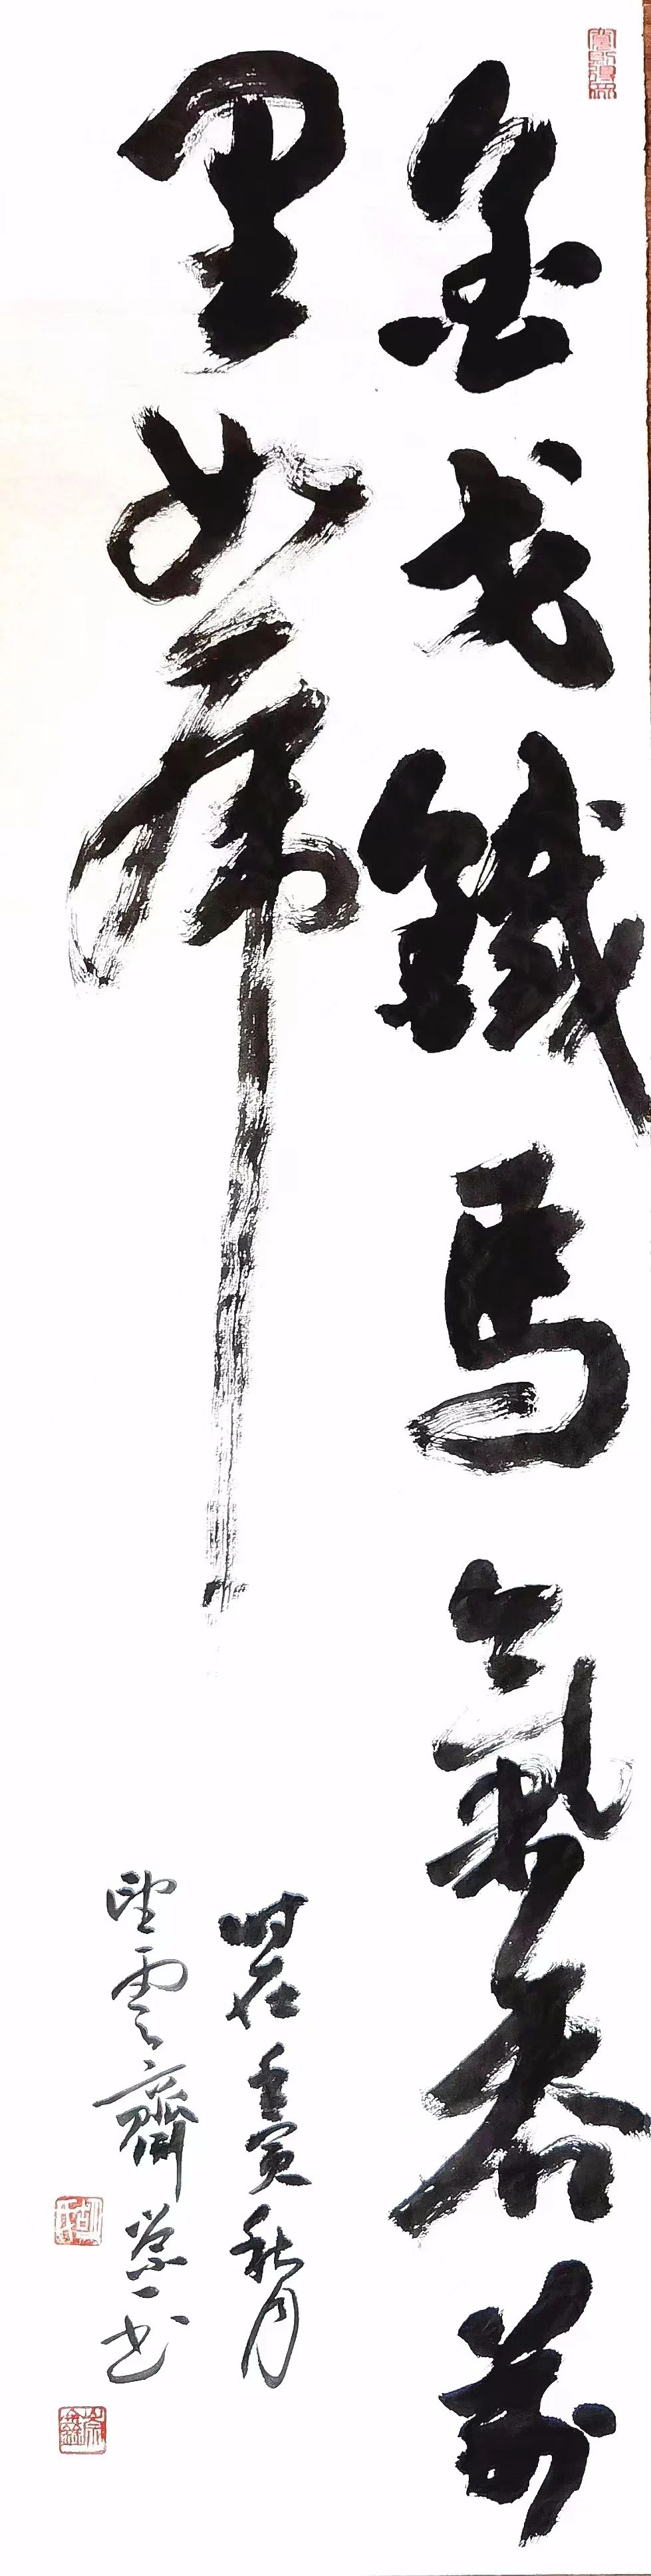 金戈鐵馬氣吞萬
里如虎
时在壬寅秋月
望雲齋一书